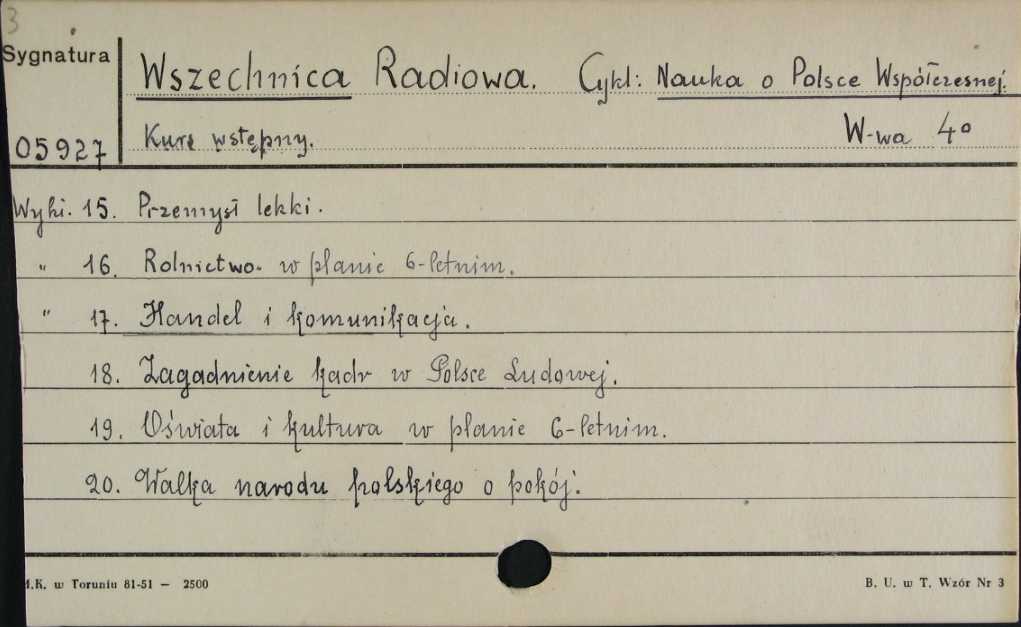 3
Sygnatura
Wszechnica Radiowa. Cykl: Nauka o Polsce Współczesnej.
05927 Kurs wstępny. W-wa 4º
Wykł. 15. Przemysł lekki.
" 16. Rolnictwo w planie 6-letnim.
" 17. Handel i komunikacja.
18. Zagadnienie kadr w Polsce Ludowej.
19. Oświata i kultura w planie 6-letnim.
20. Walka narodu polskiego o pokój.
.K. w Toruniu 81-51 — 2500 B. U. w T. Wzór Nr 3